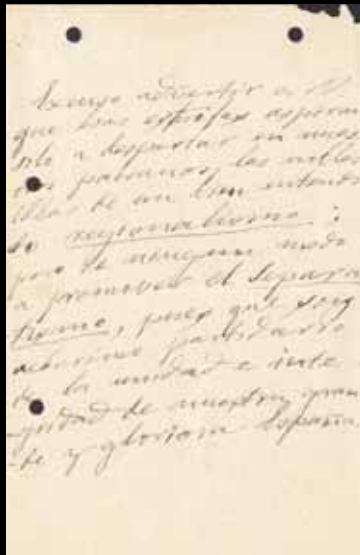 Excuso advertir a V.
que esas estrofas aspiran
sólo a despertar en nues
tros paisanos las nobles
ideas de un bien entendi
do regionalismo;
pero de ninguna modo
a promover el separa
tismo, pues que soy
acérrimo partidario
de la unidad e inte
gridad de nuestra gran
de y gloriosa España